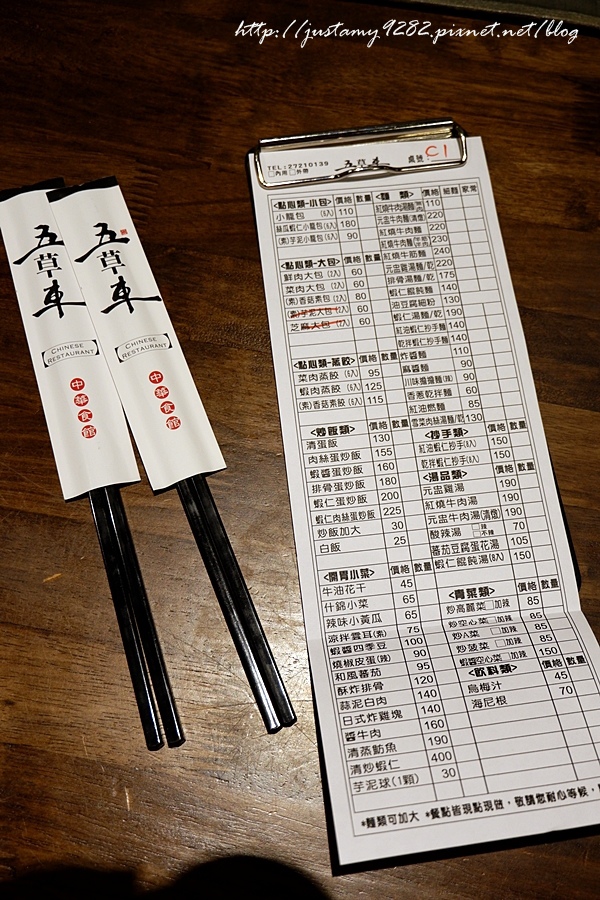 http://justamy9282.pixnet.net/blog
五草車
CHINESE
RESTAURANT
中華食館
五草車
CHINESE
RESTAURANT
中華食館
TEL:27210139 五草車 桌號: C1
□內用 □外帶
<點心類-小包> 價格 數量
小龍包 (6入) 110
絲瓜蝦仁小龍包(6入) 180
(素)芋泥小龍包(6入) 90
<點心類-大包> 價格 數量
鮮肉大包 (2入) 60
菜肉大包 (2入) 60
(素)香菇素包 (2入) 80
(素)芋泥大包 (2入) 60
芝麻大包 (2入) 60
<點心類-蒸餃> 價格 數量
菜肉蒸餃 (6入) 95
蝦肉蒸餃 (6入) 125
(素)香菇素餃 (6入) 115
<炒飯類> 價格 數量
清蛋飯 130
肉絲蛋炒飯 155
蝦醬蛋炒飯 160
排骨蛋炒飯 180
蝦仁蛋炒飯 200
蝦仁肉絲蛋炒飯 225
炒飯加大 30
白飯 25
<開胃小菜> 價格 數量
牛油花干 45
什錦小菜 65
辣味小黃瓜 65
涼拌雲耳(素) 75
蝦醬四季豆 100
燒椒皮蛋(辣) 90
和風蕃茄 95
酥炸排骨 120
蒜泥白肉 140
日式炸雞塊 140
醬牛肉 160
清蒸魴魚 190
清炒蝦仁 400
芋泥球(1顆) 30
<麵類> 價格 細麵 家常
紅燒牛肉湯麵 110
元盅牛肉麵(清燉) 220
紅燒牛肉麵 220
紅燒牛肉麵 230
紅燒牛筋麵 240
元盅雞湯麵/乾 220
排骨湯麵/乾 175
蝦仁餛飩麵 140
油豆腐細粉 130
蝦仁湯麵/乾 190
紅油蝦仁抄手麵 140
乾拌蝦仁抄手麵 140
炸醬麵 110
麻醬麵 90
川味擔擔麵(辣) 90
香蔥乾拌麵 60
紅油燃麵 85
雪菜肉絲湯麵/乾 130
<抄手類> 價格 數量
紅油蝦仁抄手(8入) 150
乾拌蝦仁抄手(8入) 150
<湯品類> 價格 數量
元盅雞湯 190
紅燒牛肉湯 190
元盅牛肉湯(清燉) 190
酸辣湯 □辣 □不辣 70
蕃茄豆腐蛋花湯 105
蝦仁餛飩湯(8入) 150
<青菜類> 價格 數量
炒高麗菜□加辣 85
炒空心菜□加辣 85
炒A菜 □加辣 85
炒菠菜 □加辣 85
蝦醬空心菜□加辣 150
<飲料類> 價格 數量
烏梅汁 45
海尼根 70
*麵類可加大 *餐點皆現點現做，敬請您耐心等候，